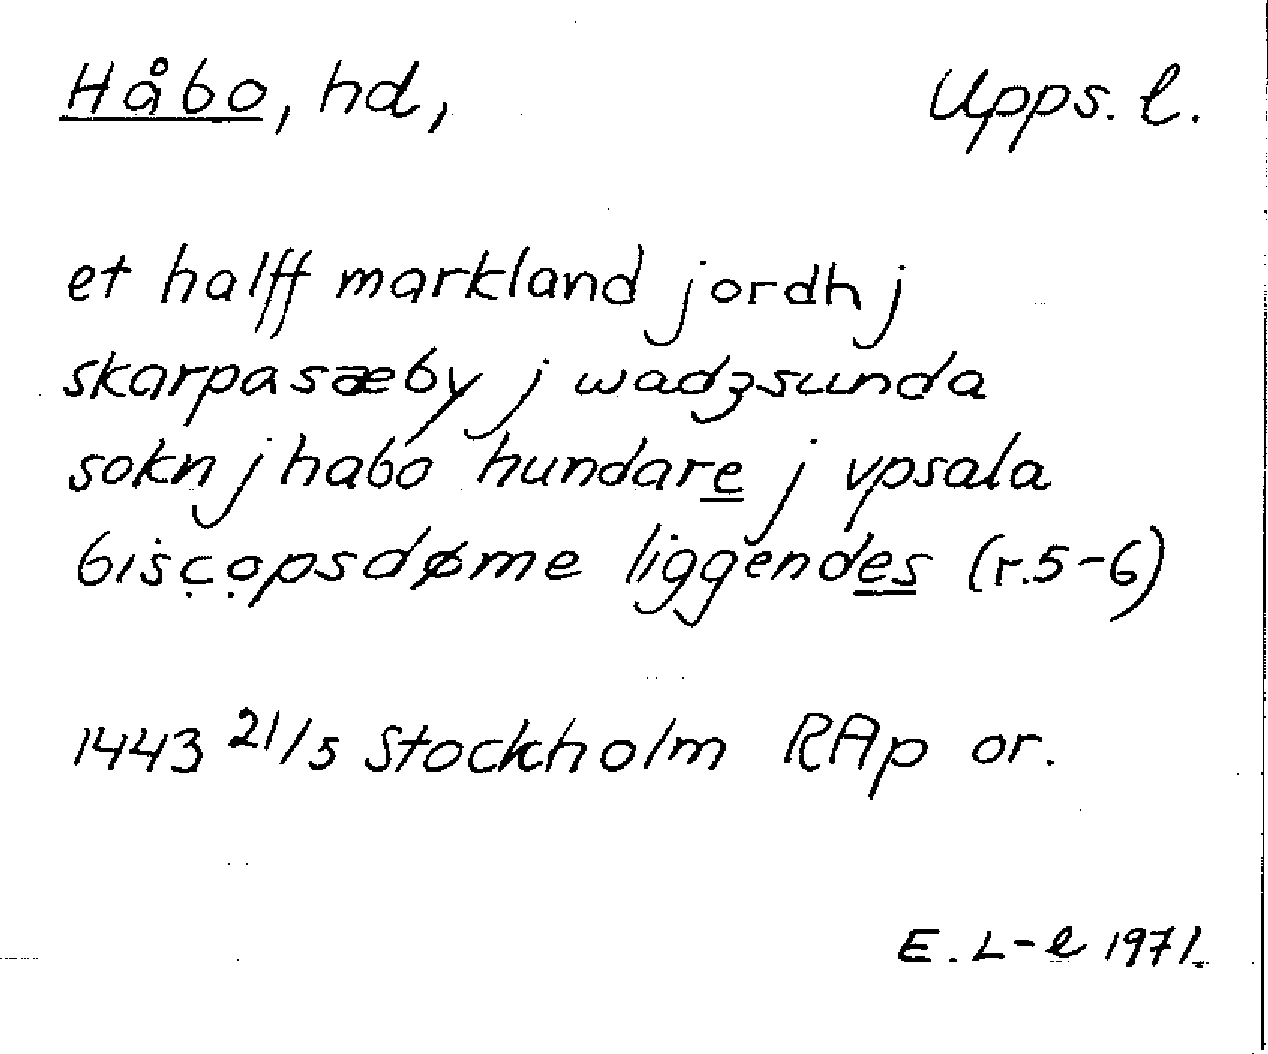 Håbo, hd, Upps. l.
et halff markland jordh j
skarpasæby j wadzsunda
sokn j habo hundare j vpsala
biscopsdøme liggendes (r.5-6)
1443 21/5 Stockholm RAp or.
E. L-e 1971.